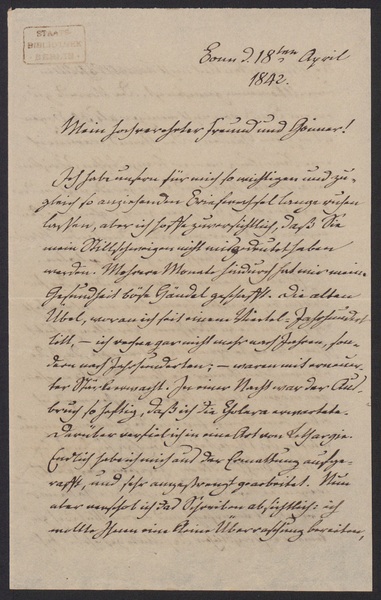 STAATS-
BIBLIOTHEK
BERLIN
Bonn d. 18ten April
1842.
Mein hochverehrter Freund und Gönner!
Ich habe unsern für mich so wichtigen und zu-
gleich so anziehenden Briefwechsel lange ruhen
lassen, aber ich hoffe zuversichtlich, daß Sie
mein Stillschweigen nicht misgedeutet haben
werden. Mehrere Monate hindurch hat mir meine
Gesundheit böse Händel geschafft. Die alten
Übel, woran ich seit einem Viertel-Jahrhundert
litt, – ich rechne gar nicht mehr nach Jahren, son-
dern nach Jahrhunderten; – waren mit erneuer-
ter Stärke erwacht. In einer Nacht war der Aus-
bruch so heftig, daß ich die Cholera erwartete.
Darüber verfiel ich in eine Art von Lethargie.
Endlich habe ich mich aus der Ermattung aufge-
rafft, und sehr angestrengt gearbeitet. Nun
aber verschob ich das Schreiben absichtlich: ich
wollte Ihnen eine kleine Überraschung bereiten,